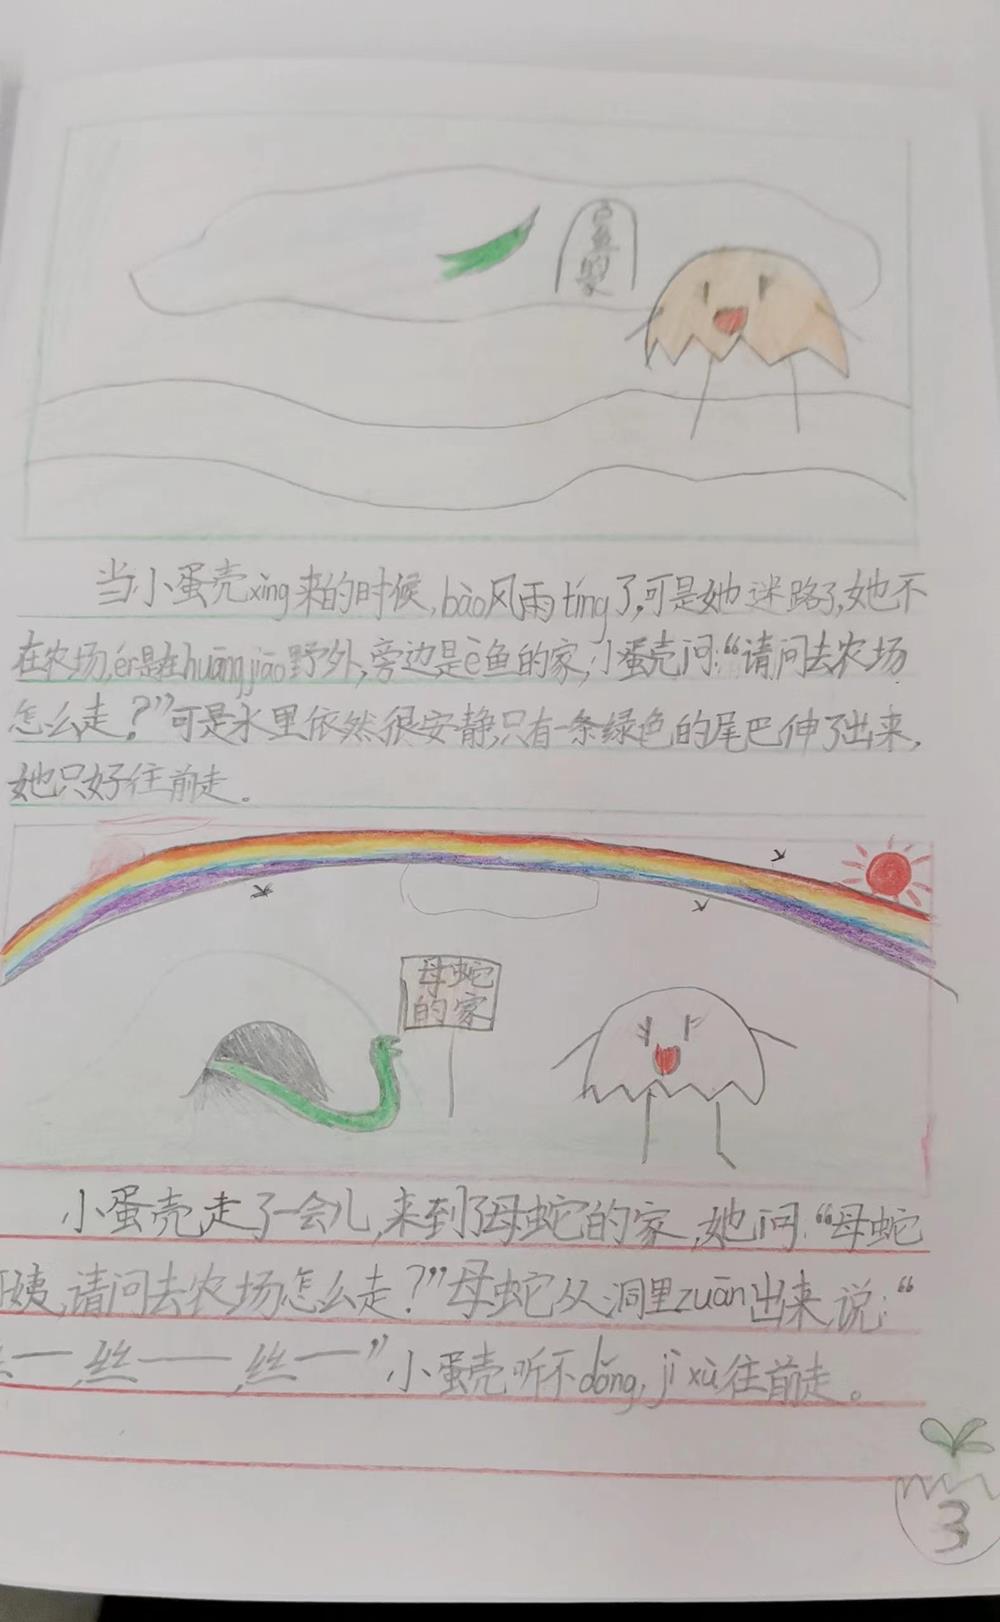 鱼的家
当小蛋壳xǐng来的时候,bào风雨tíng了,可是她迷路了,她不
在农场,ér是在huāng jiāo野外,旁边是è鱼的家,小蛋壳问:“请问去农场
怎么走?”可是水里依然很安静,只有一条绿色的尾巴伸了出来,
她只好往前走。
母蛇
的家
小蛋壳走了一会儿,来到了母蛇的家,她问:“母蛇
姨,请问去农场怎么走?”母蛇从洞里zuān出来,说:“
一,丝——,丝一”小蛋壳听不dǒng,jì xù往前走。
3